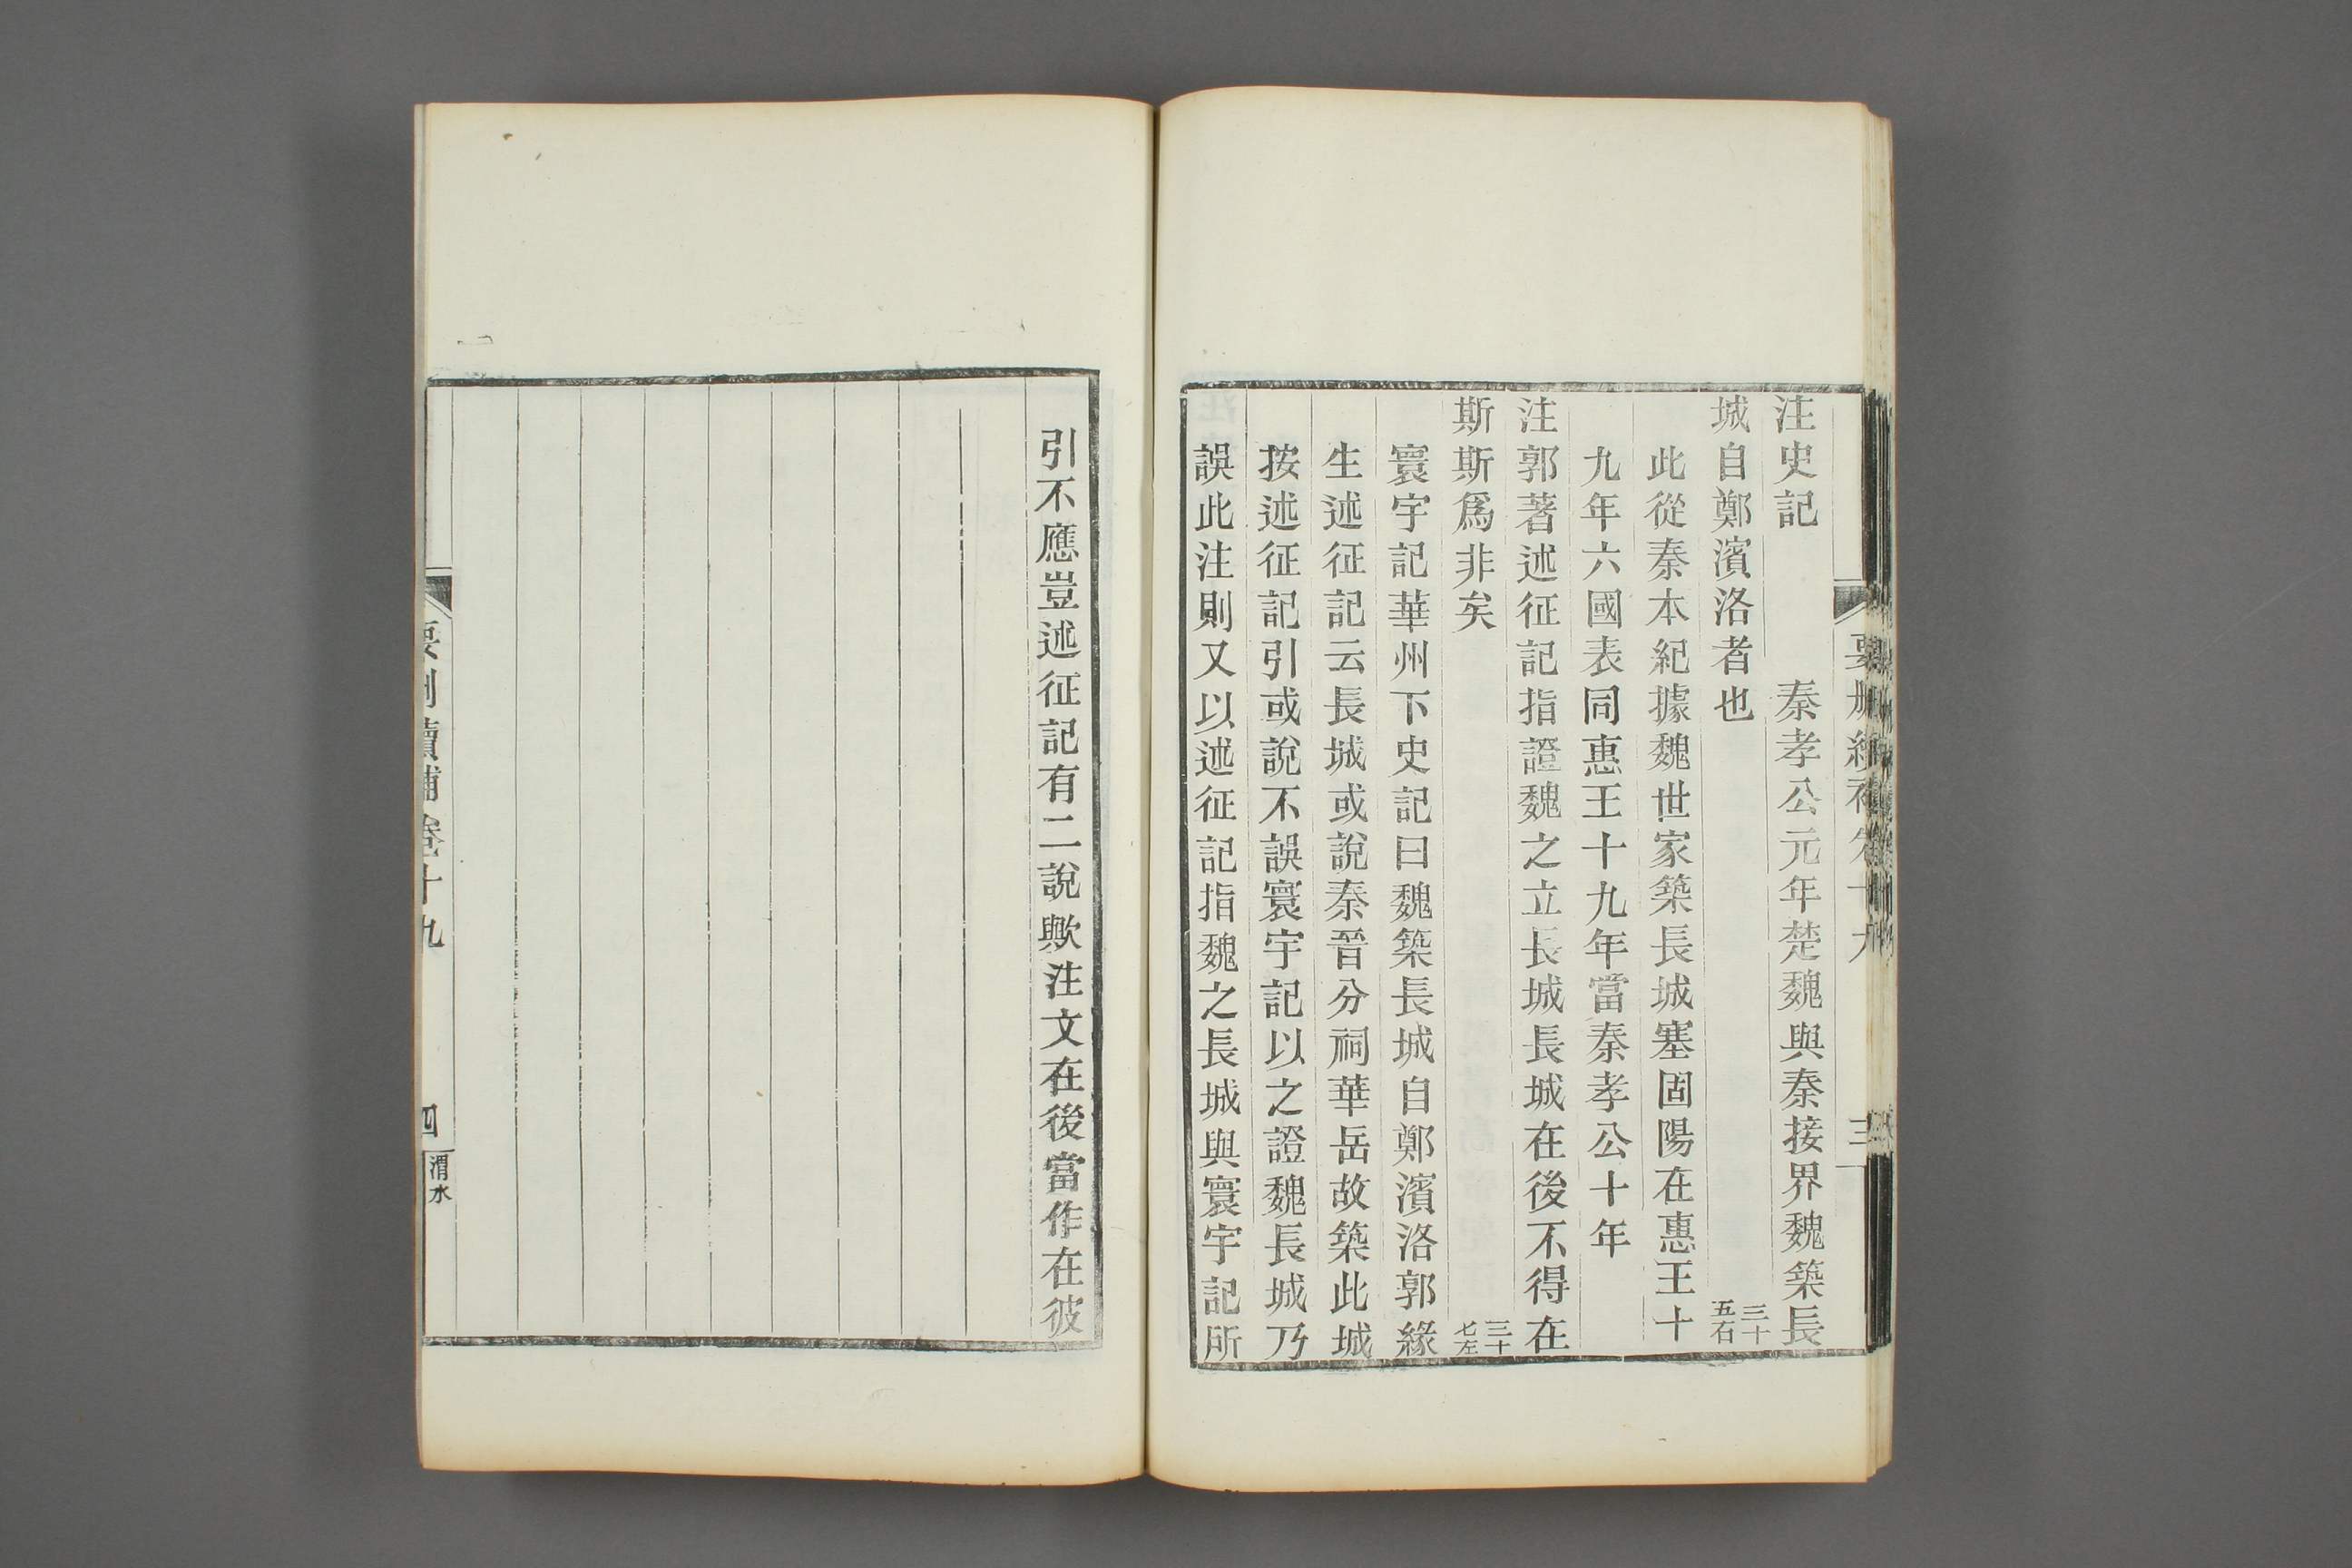 注史記　　　秦孝公元年楚魏與秦接界魏築長
城自鄭濱洛者也
三十
五右
此從秦本紀據魏世家築長城塞固陽在惠王十
九年六國表同惠王十九年當秦孝公十年
注郭著述征記指證魏之立長城長城在後不得在
斯斯爲非矣
三十
七左
寰宇記華州下史記曰魏築長城自鄭濱洛郭緣
生述征記云長城或說秦晉分祠華岳故築此城
按述征記引或說不誤寰宇記以之證魏長城乃
誤此注則又以述征記指魏之長城與寰宇記所
引不應豈述征記有二說歟注文在後當作在彼
要刪續補卷十九
四
渭水